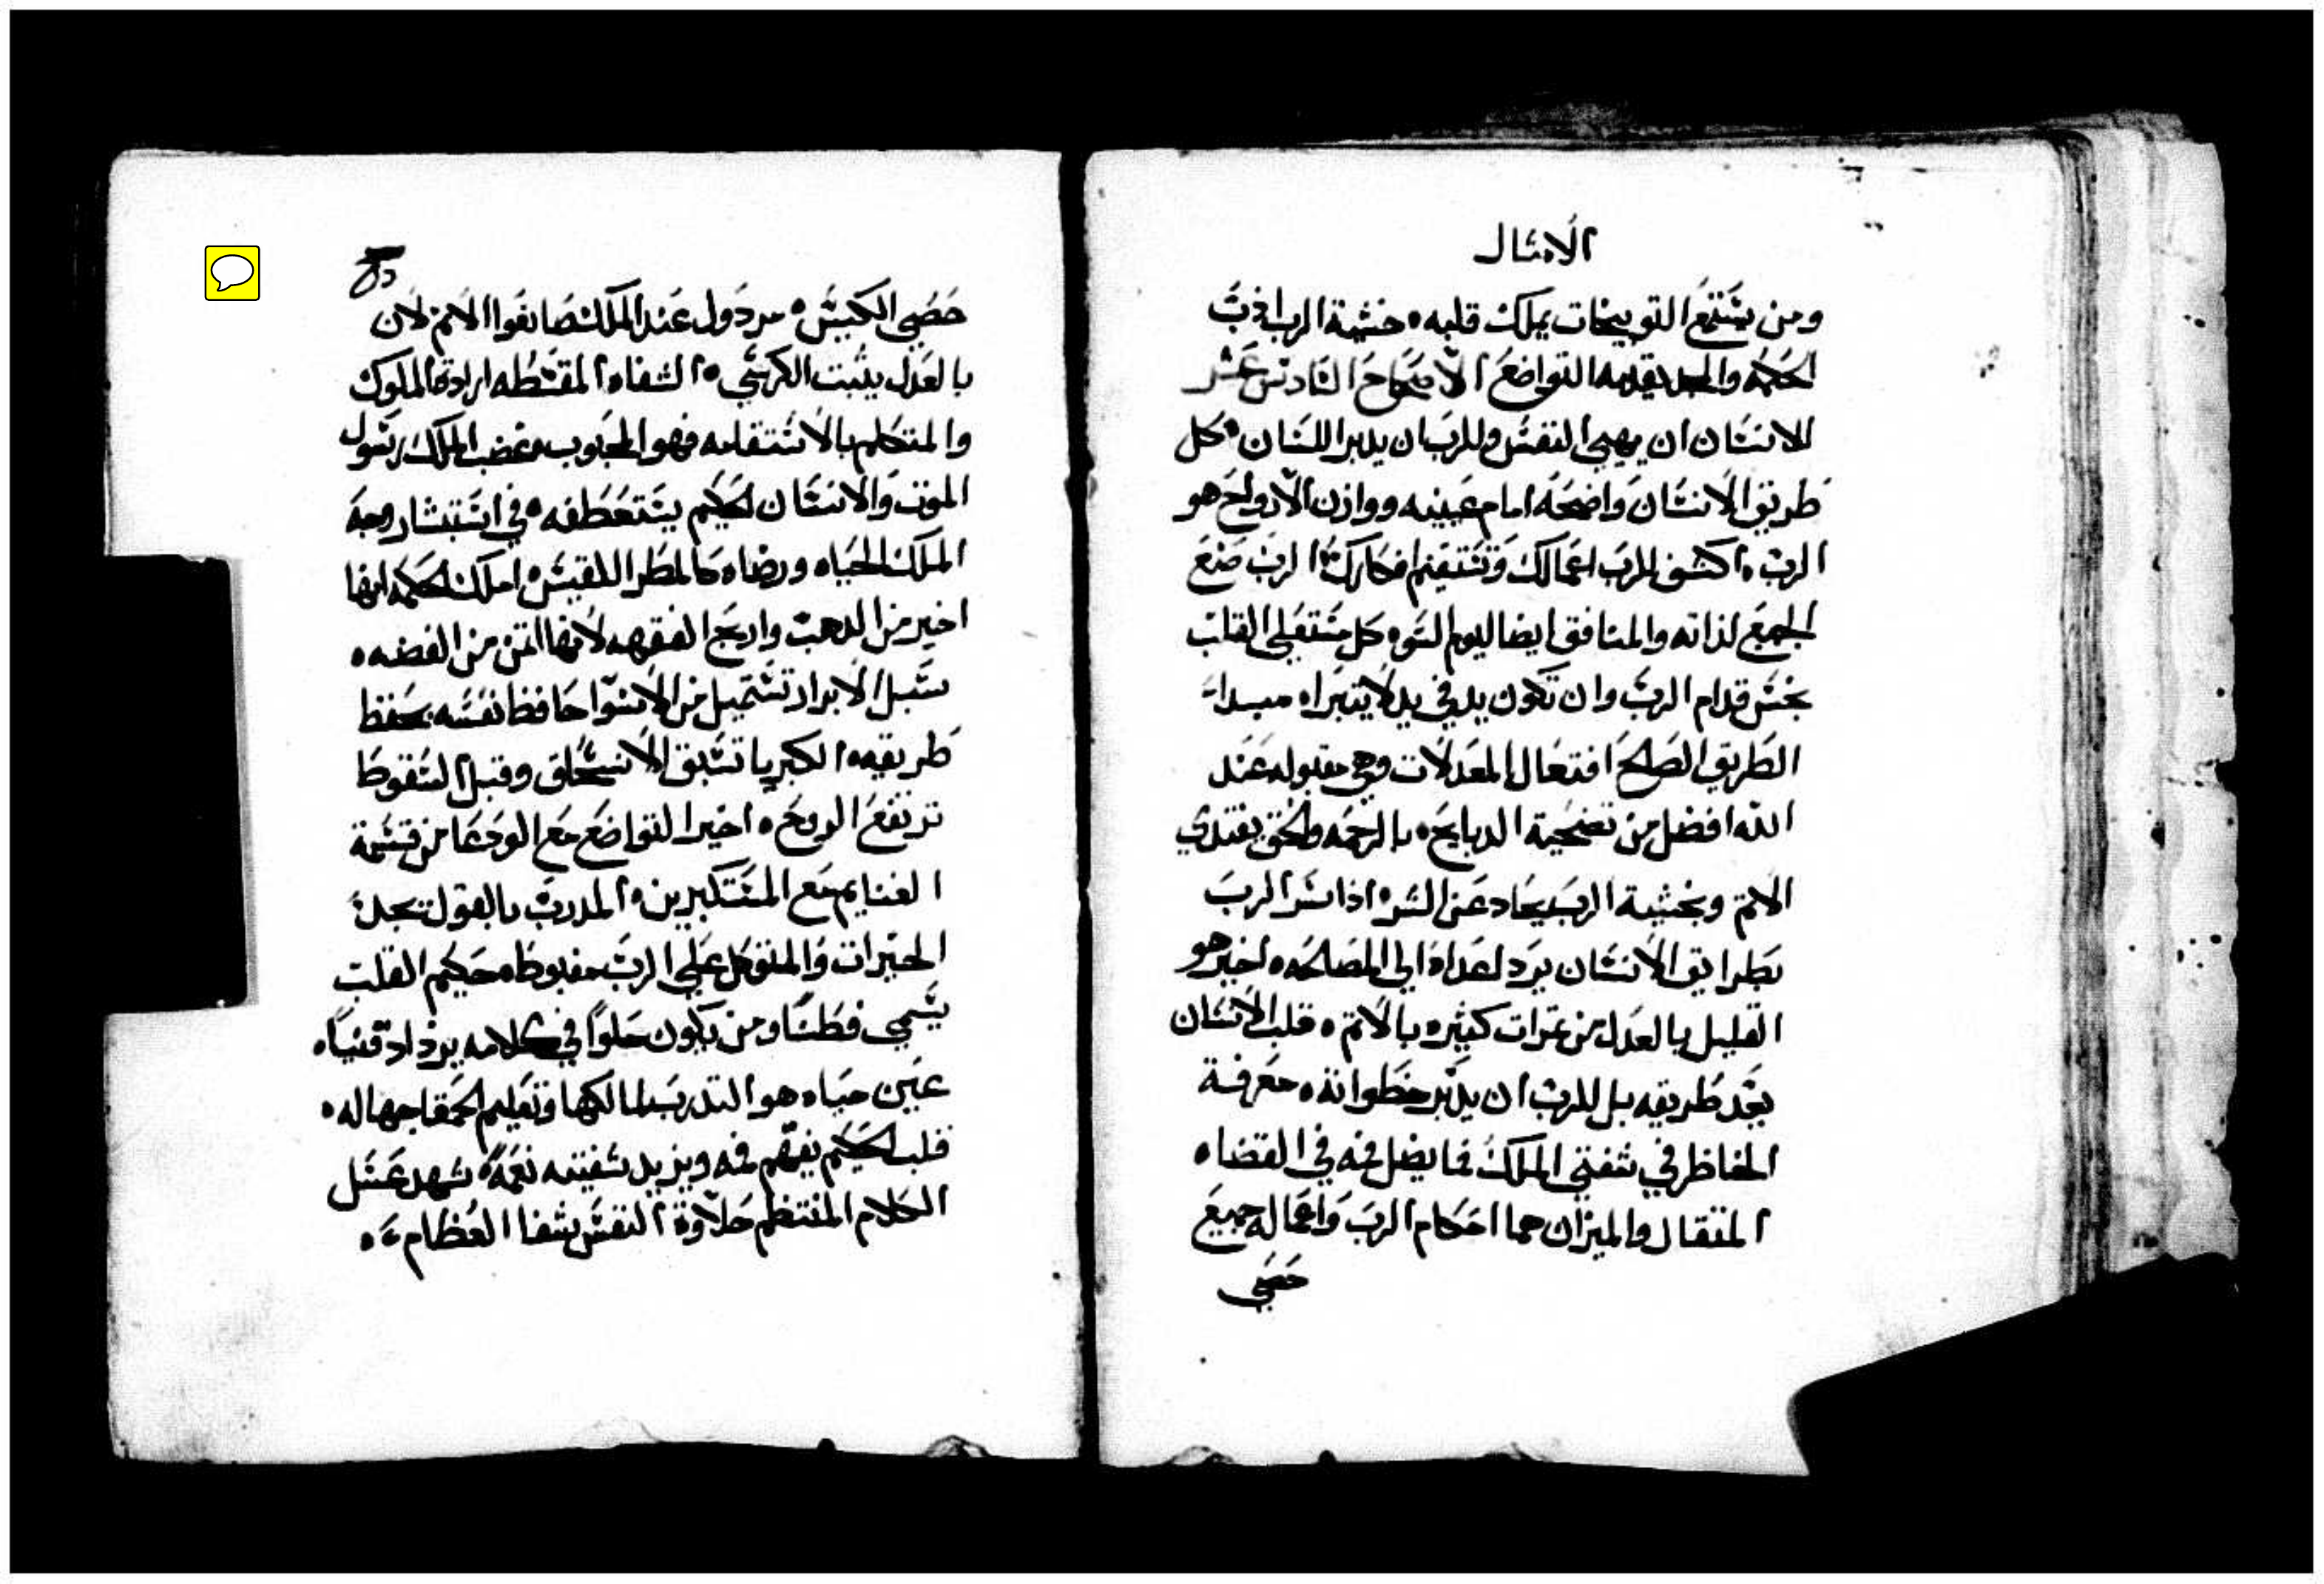 الامثال
ومن يستمع التوبيخات يملك قلبه ٠ خشية الرب ادب
الحكمه والمجد يقدمه التواضع الاصحاح السادس عشر
للانسان ان يهيى النفس وللرب ان يدبر اللسان ٠ كل
طريق الانسان واضحه امام عينيه ووازن الارواح هو
الرب ٠ اكشف للرب اعمالك وتستقيم افكارك ٠ الرب صنع
الجميع لذاته والمنافق ايضا ليوم السوء كل مستعلي القلب
نجس قدام الرب وان تكون يد في يد لا يتبرا ٠ مبداء
الطريق الصالح افتعال المعدلات وهي مقبوله عند
الله افضل من تضحية الدبايح ٠ بالرحمه والحق يفتدي
الاثم وبخشية الرب يحاد عن الشر ٠ اذا سر الرب
بطرايق الانسان يرد اعداه الي المصالحه ٠ اخير هو
القليل بالعدل من ثمرات كثيره بالاثم ٠ قلب الانسان
يعد طريقه بل للرب ان يدبر خطواته ٠ معرفة
الخاطر في شفتي الملك فما يضل فمه في القضاء
المثقال والميزان هما احكام الرب واعماله جميع
حصي
حصي الكيس ٠ مردول عند الملك صانعوا الاثم لان
بالعدل يثبت الكرسي ٠ الشفاه المقسطه ارادة الملوك
والمتكلم بالاستقامه فهو المحبوب ٠ غضب الملك رسول
الموت والانسان الحكيم يستعطفه ٠ في استبشار وجه
الملك الحياه ورضاه كالمطر اللقيس ٠ املك الحكمه انها
اخير من الدهب واربح الفقهه لانها اثمن من الفضه ٠
سبل الابرار تستميل من الاسوا حافظ نفسه يحفظ
طريقه ٠ الكبريا تسبق الانسحاق وقبل السقوط
ترتفع الروح ٠ اخير التواضع مع الودعا من قسمة
الغنايم مع المستكبرين ٠ المدرب بالقول يجد
الخيرات والمتوكل علي الرب مغبوط ٠ حكيم القلب
يسمي فطنا ومن يكون حلوا في كلامه يزداد قنيا ٠
عين حياه هو التدرب لمالكها وتعليم الحمقا جهاله ٠
قلب الحكيم يفهم فمه ويزيد شفتيه نعمه ٠ شهد عسل
الكلام المنتظم حلاوة النفس شفا العظام ٠